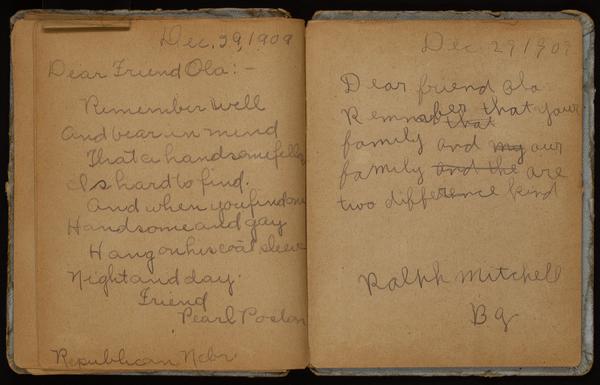 Dec. 29, 1909
Dear Friend Ola:-
Remember well
And bear in mind
That a handsome fellow
Is hard to find.
And when you find one
Handsome and gay
Hang on his coat sleeve
Night and day.
Friend
Pearl
Republican Nebr
Dec 29 1909
Dear friend Ola
Remember that your
that
family and my our
family and the are
two difference kind
Ralph Mitchell